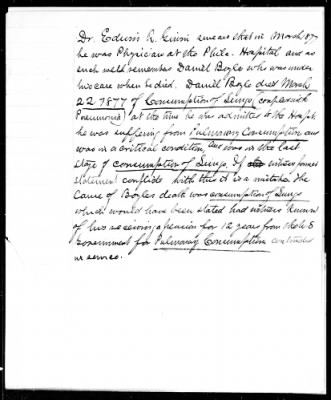 Dr. Edwin R. Girvin swears that in March 1877
he was Physician at the Phila. Hospital and as
such well remembers Daniel Boyle who was under
his care when he died. Daniel Boyle died March
22 1877 of Consumption of Lungs, complicated with
Pneumonia, at the time he was admitted to the Hospt.
he was suffering from Pulmonary Consumption and
was in a critical condition, and was in the last
stage of consumption of Lungs. If witness former
statement conflicts with this it is a mistake. The
cause of Boyles death was consumption of Lungs
which would have been stated had witness known
of his receiving a pension for 12 years from the U S
Government for Pulmonary Consumption contracted
in service.